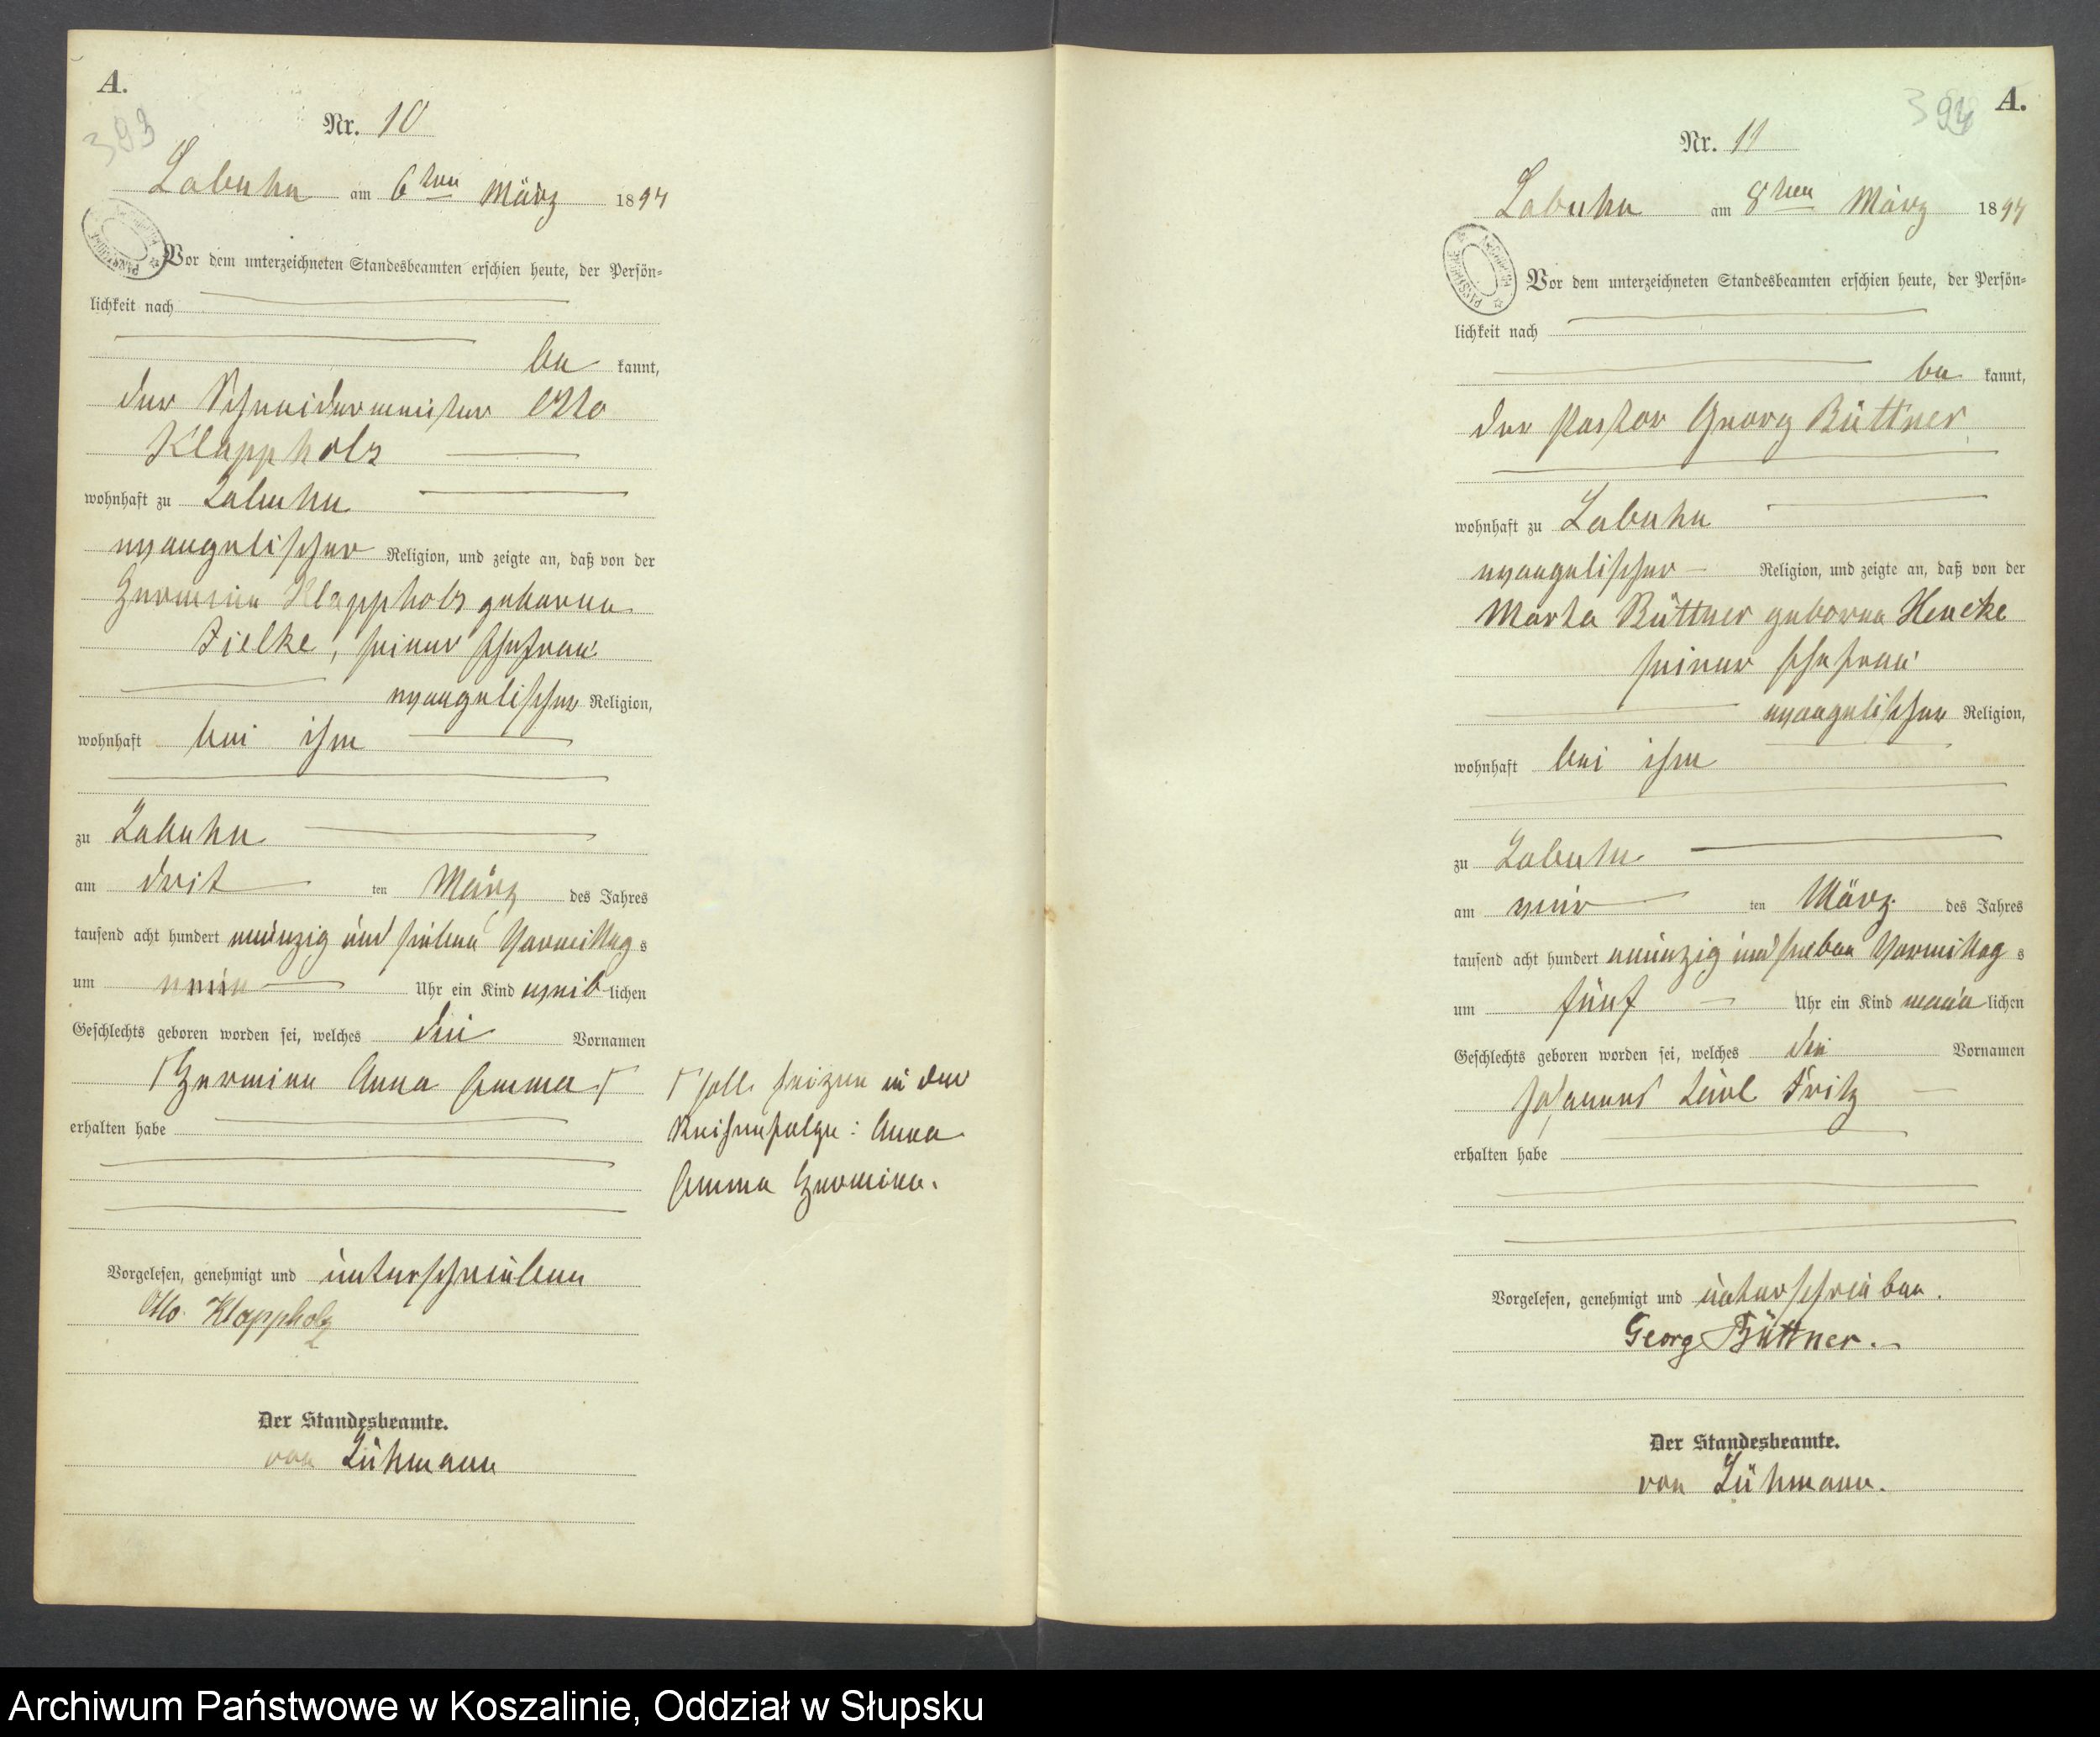 A.
393
Nr. 10
Labuhn am 6ten März 1897
Vor dem unterzeichneten Standesbeamten erschien heute, der Persön-
lichkeit nach
be kannt,
der Schneidermeister Otto
Klappholz
wohnhaft zu Labuhn
evangelischer Religion, und zeigte an, daß von der
Hermine Klappholz geborene
Zielke, seiner Ehefrau
evangelischer Religion,
wohnhaft bei ihm
zu Labuhn
am drit ten März des Jahres
tausend acht hundert neunzig und sieben Vormittag s
um neun Uhr ein Kind weib lichen
Geschlechts geboren worden sei, welches die Vornamen
Hermine Anna Emma
erhalten habe
Vorgelesen, genehmigt und unterschrieben
Otto Klappholz
Der Standesbeamte.
von Lühmann
soll heizen in der
Reihenfolge: Anna
Emma Hermine.
A.
394
Nr. 11
Labuhn am 8ten März 1897
Vor dem unterzeichneten Standesbeamten erschien heute, der Persön-
lichkeit nach
be kannt,
der Pastor Georg Büttner
wohnhaft zu Labuhn
evangelischer Religion, und zeigte an, daß von der
Marta Büttner geborene Hencke
seiner Ehefrau
evangelischer Religion,
wohnhaft bei ihm
zu Labuhn
am vier ten März des Jahres
tausend acht hundert neunzig und sieben Vormittag s
um fünf Uhr ein Kind männ lichen
Geschlechts geboren worden sei, welches die Vornamen
Johannes Karl Fritz
erhalten habe
Vorgelesen, genehmigt und unterschrieben.
Georg Büttner.
Der Standesbeamte.
von Lühmann.
Archiwum Państwowe w Koszalinie, Oddział w Słupsku